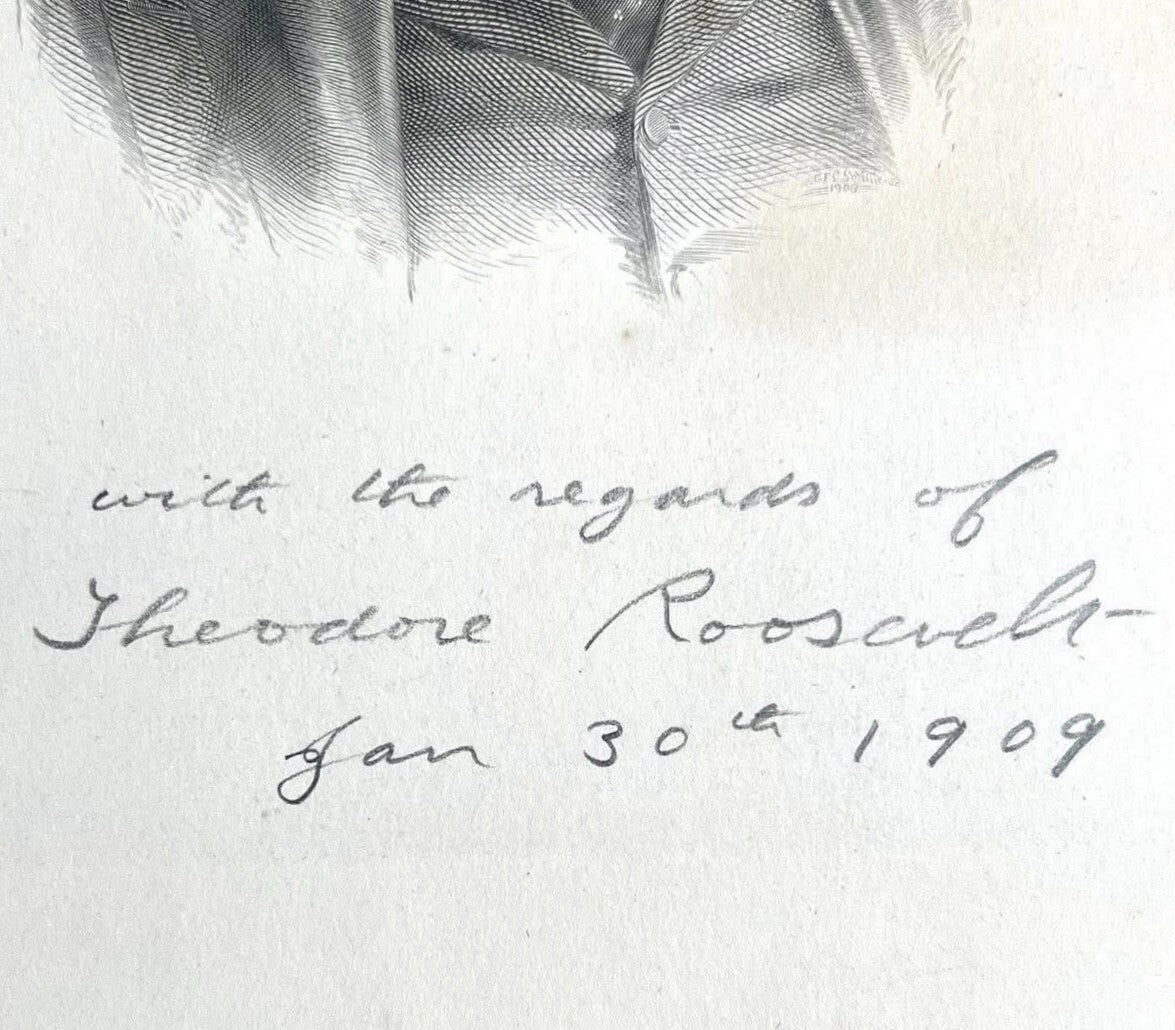 1908
with the regards of
Theodore Roosevelt
Jan 30th 1909